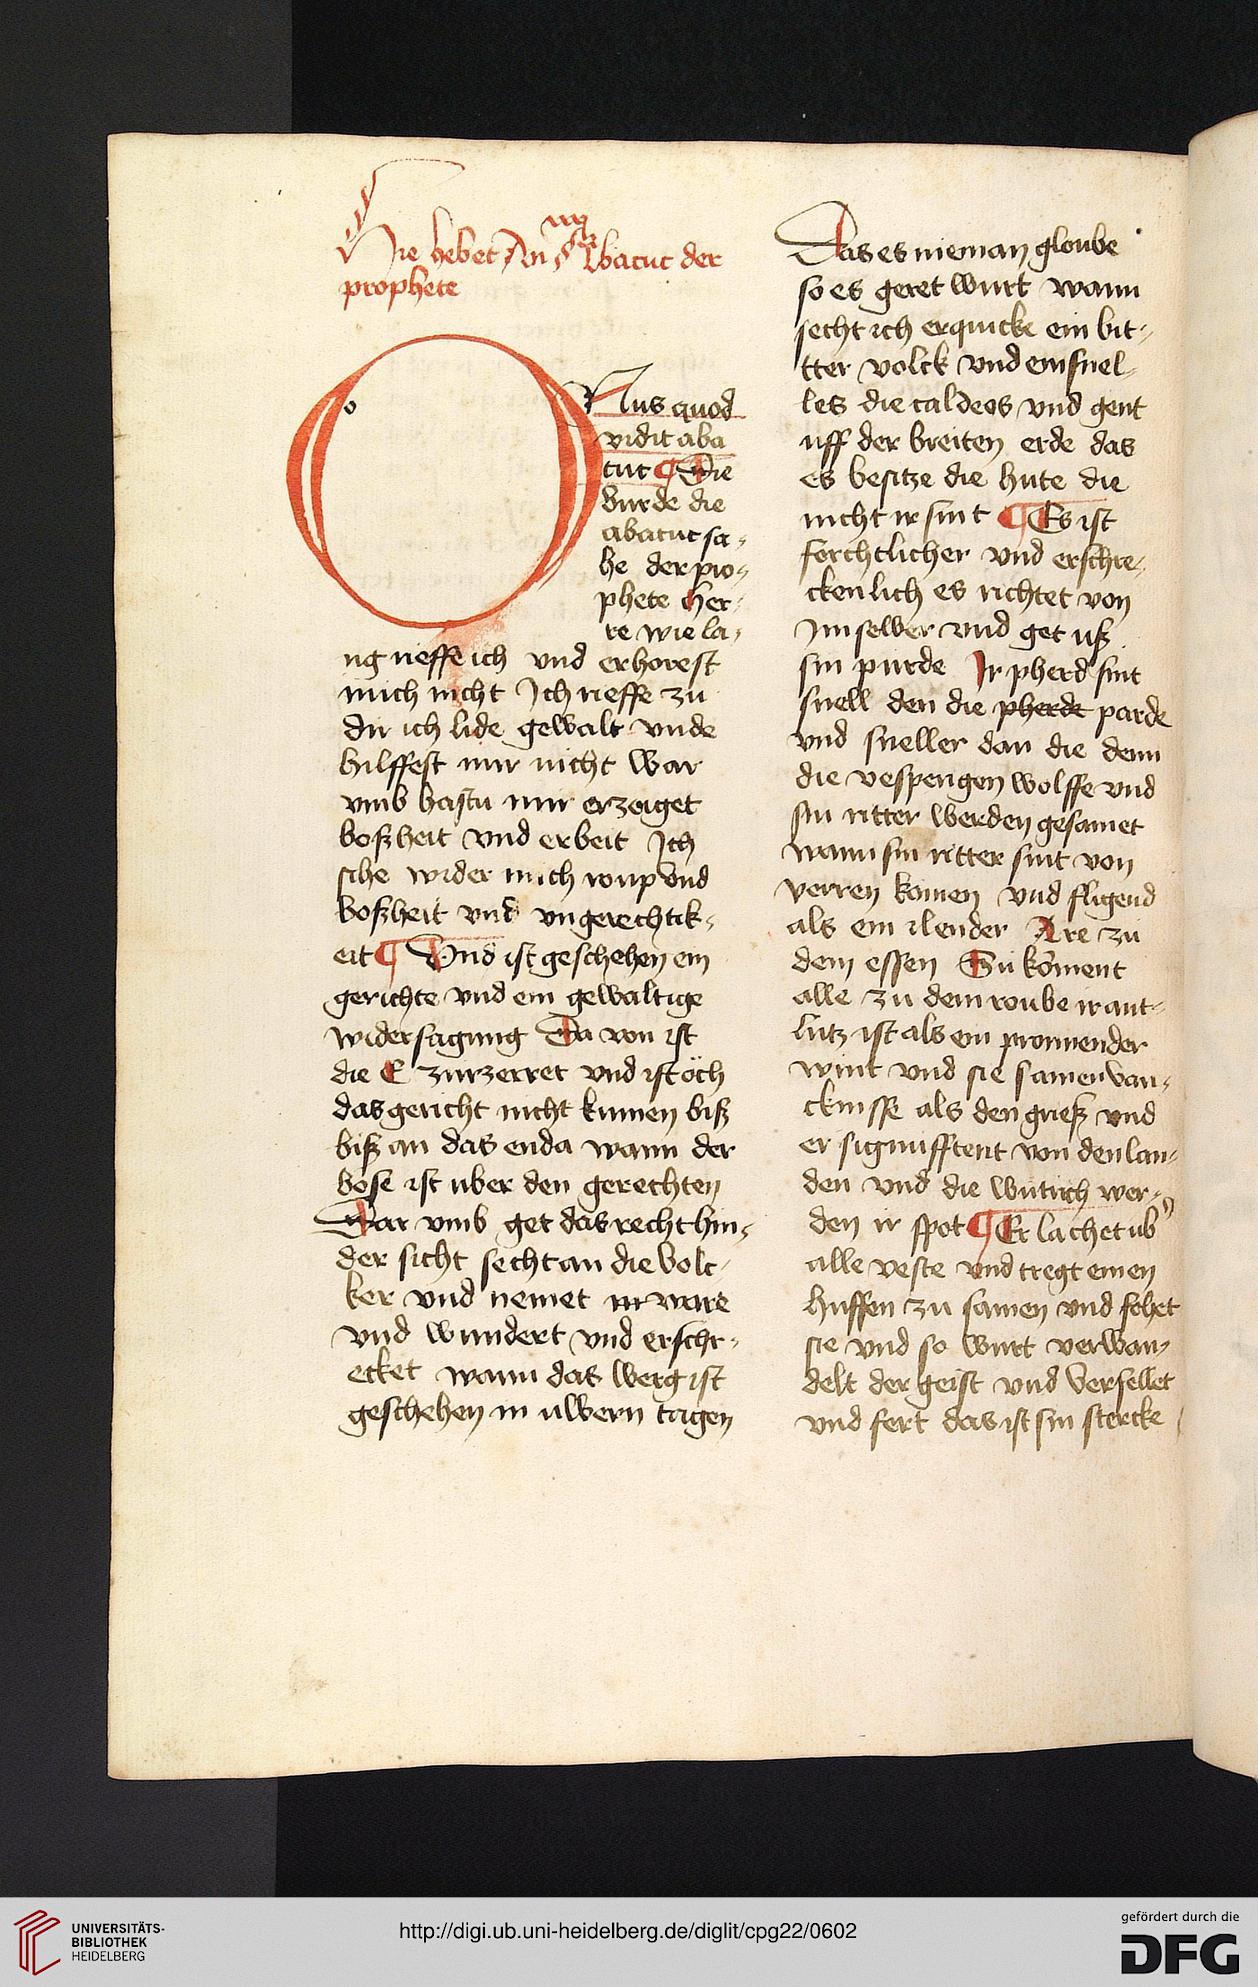 Hie hebet An Abacuc der
prophete
ONus quod
vidit aba
cuc ¶ Die
burde die
abacuc sa-
he der pro-
phete Her-
re wie la-
ng rieffe ich vnd erhorest
mich nicht Ich rieffe zu
dir ich lide gewalt vnde
hilffest mir nicht War
vmb hastu mir erzeiget
boßheit vnd erbeit Ich
sihe wider mich roup vnd
boßheit vnd vngerechtik-
eit ¶ Vnd ist geschehen ein
gerichte vnd ein gewaltige
widersagung Da von ist
die E zurzerret vnd ist öch
das gericht nicht kumen biß
biß an das enda wann der
bose ist uber den gerechten
Dar vmb get das recht hin-
der sicht secht an die volc-
ker vnd nemet in ware
vnd wundert vnd erschr-
ecket wann das werg ist
geschehen in uwern tagen
Das es nieman gloube
so es geret wurt wann
secht ich erquicke ein bit-
tter volck vnd ein snel-
les die caldeos vnd gent
uff der breiten erde das
es besitze die hute die
nicht ir sint ¶ Es ist
forchtlicher vnd erschre-
ckenlich es richtet von
Im selwer vnd get uß
sin purde Ir pherd sint
snell den die pherde parde
vnd sneller dan die denn
die vesperigen wolffe vnd
sin ritter werden gesamet
wann sin ritter sint von
verren komen vnd fligend
als ein ilender Are zu
dem essen Su koment
alle zu dem roube ir ant-
lutz ist als ein pronnender
wint vnd sie samen van-
cknisse als den grieß vnd
er signifftent von den lan-
den vnd die wutrich wer-
den ir spot ¶ Er lachet ub
alle veste vnd tregt einen
huffen zu samen vnd fehet
sie vnd so wurt verwan-
delt der geist vnd verfellet
vnd fert das ist sin stercke
UNIVERSITÄTS-
BIBLIOTHEK
HEIDELBERG
http://digi.ub.uni-heidelberg.de/diglit/cpg22/0602
gefördert durch die
DFG